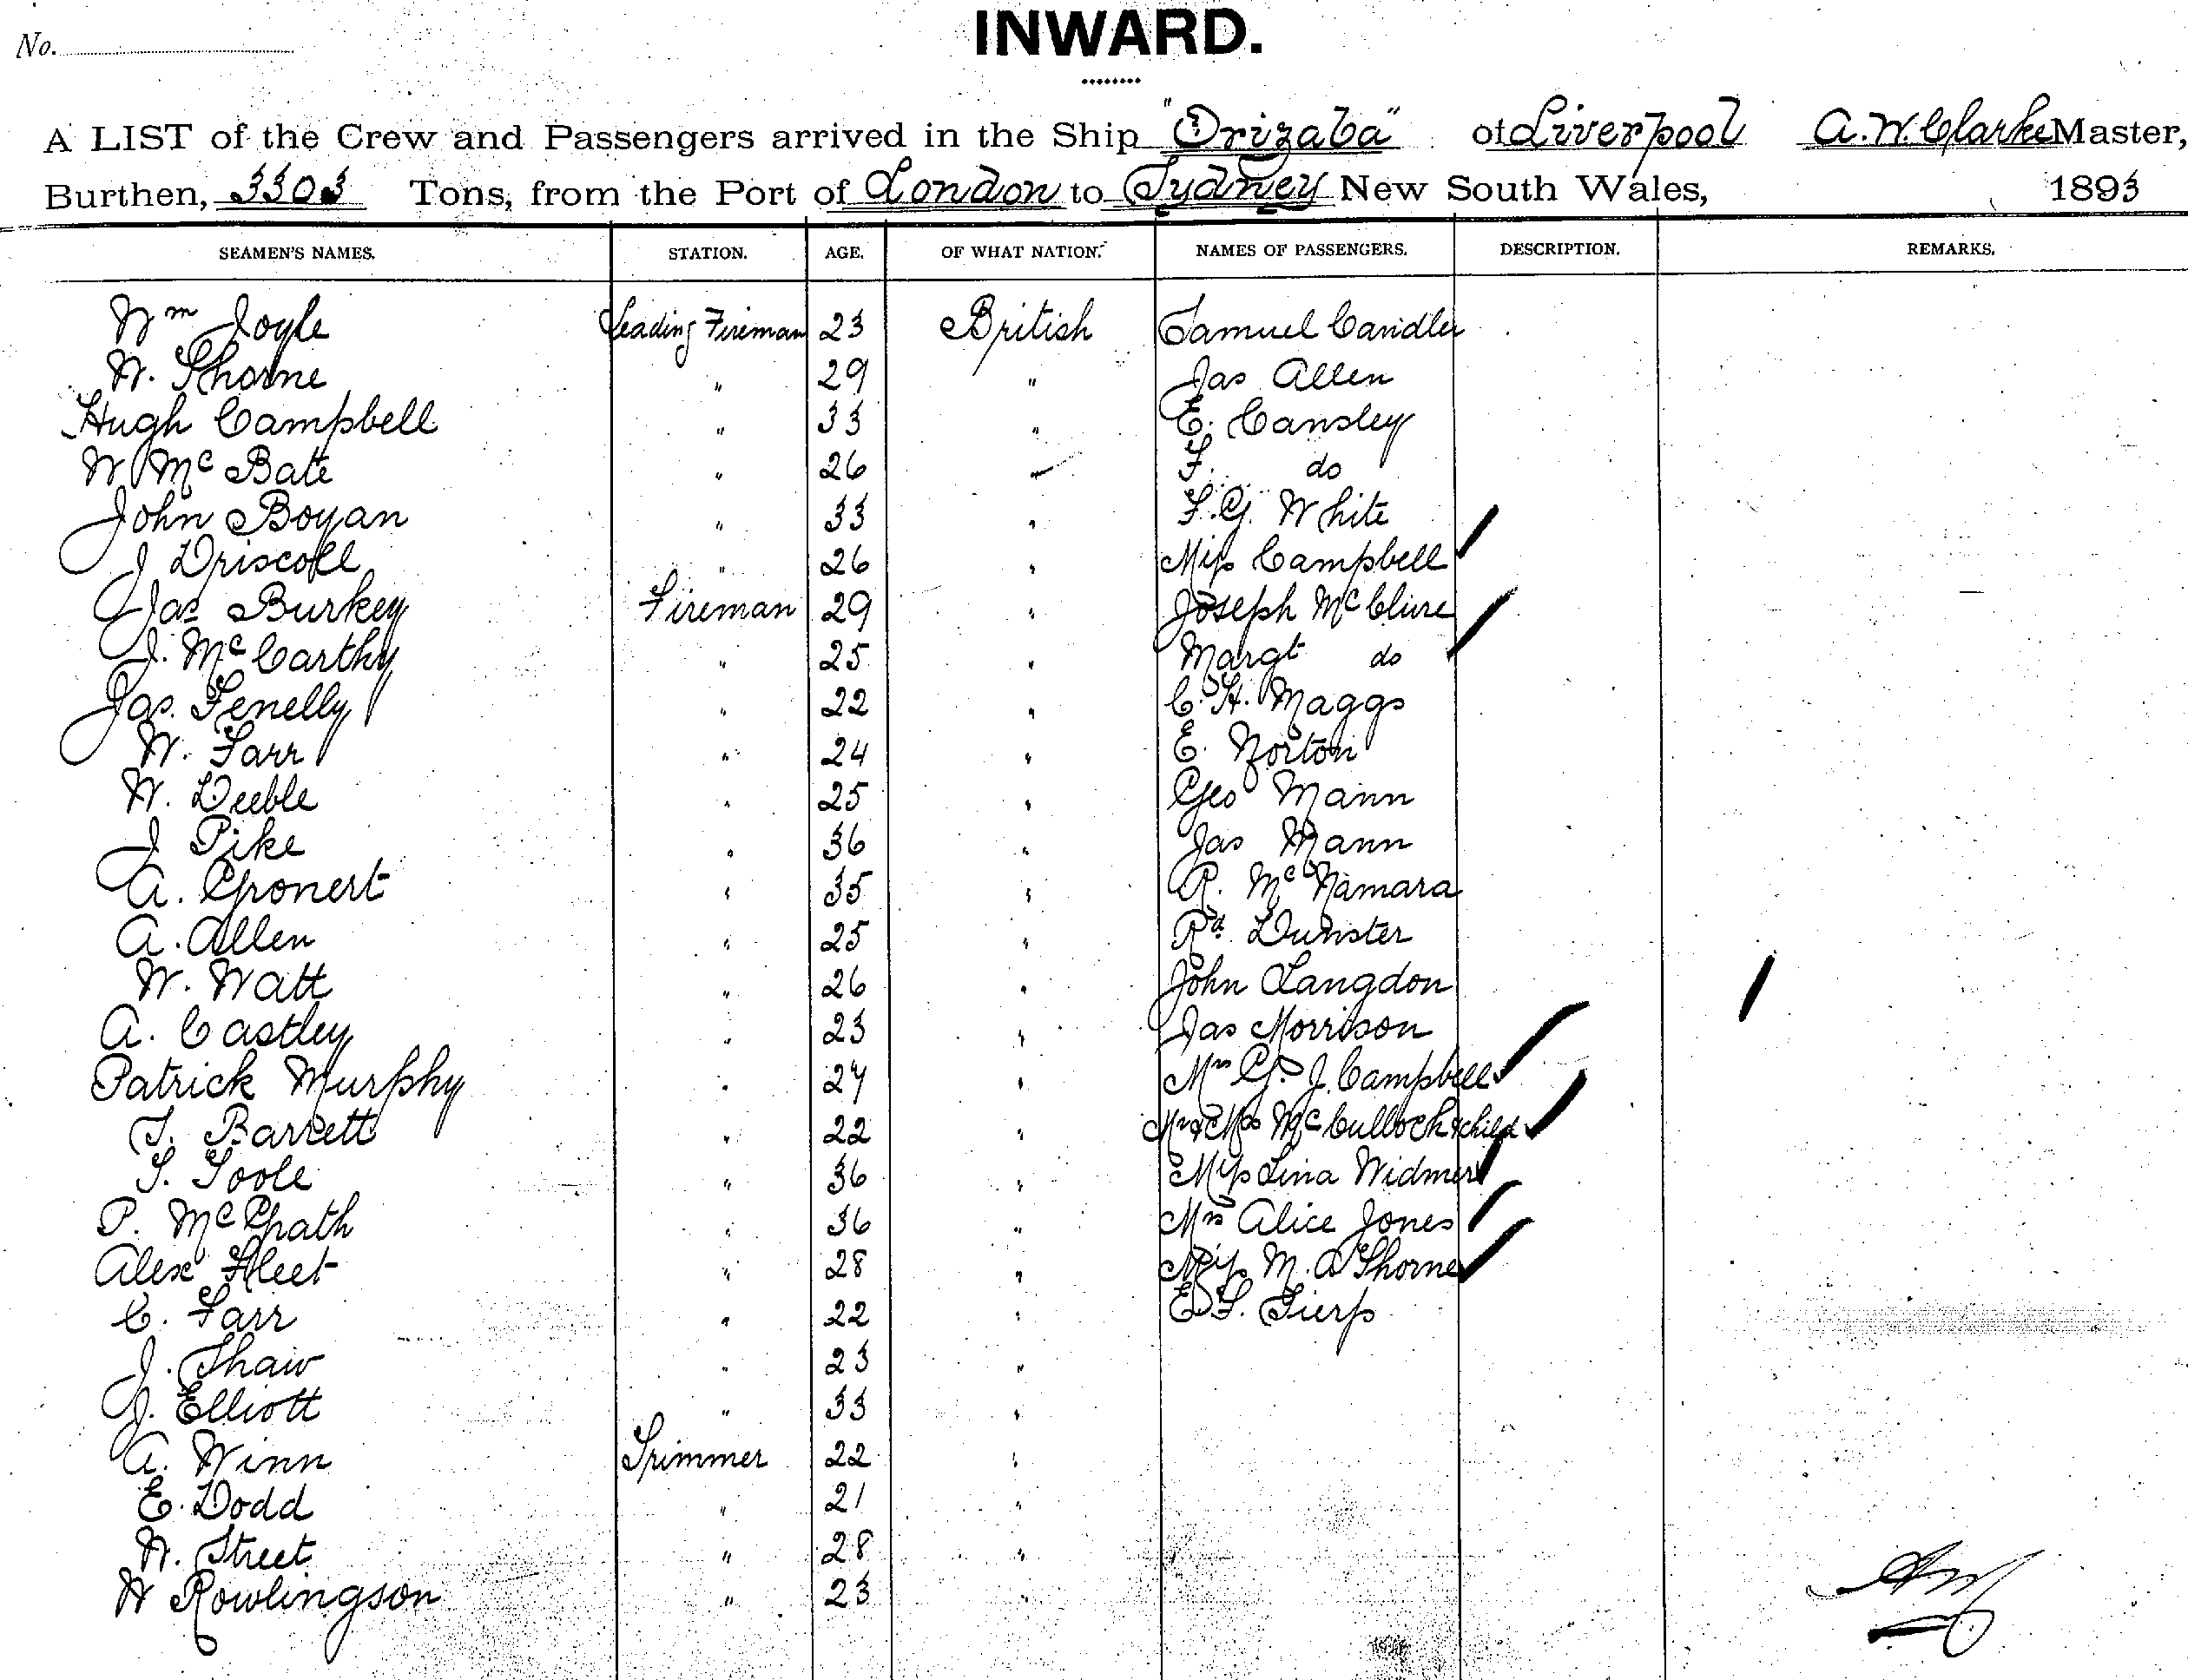 No.
INWARD.
A LIST of the Crew and Passengers arrived in the Ship "Orizaba" of Liverpool A. W. Clarke Master,
Burthen, 3303 Tons, from the Port of London to Sydney New South Wales, 1893
SEAMEN'S NAMES. STATION. AGE. OF WHAT NATION. NAMES OF PASSENGERS. DESCRIPTION. REMARKS.
Wm Joyle Leading Fireman 23 British Samuel Candler
W. Thorne " 29 " Jas Allen
Hugh Campbell " 33 " E. Cansley
W McBate " 26 " F. do
John Boyan " 33 " F. G. White
J Driscoll " 26 " Miss Campbell
Jas Burkey Fireman 29 " Joseph McClure
J. McCarthy " 25 " Margt do
Jas. Fenelly " 22 " C. H. Maggs
W. Farr " 24 " E. Norton
W. Deeble " 25 " Geo Mann
J Pike " 36 " Jas Mann
A. Gronert " 35 " R. McNamara
A. Allen " 25 " Rd. Dunster
W. Watt " 26 " John Langdon
A. Castley " 23 " Jas Morrison
Patrick Murphy " 27 " Mrs G. J. Campbell
T. Barrett " 22 " Mr & Mrs McCulloch & child
T. Toole " 36 " Miss Lina Widmer
P. McGrath " 36 " Mrs Alice Jones
Alex Fleet " 28 " Miss M. A Thorne
C. Farr " 22 " E F.
J. Shaw " 23 "
J. Elliott " 33 "
A. Winn Trimmer 22 "
E. Dodd " 21 "
W. Street " 28 "
W Rowlingson " 23 "